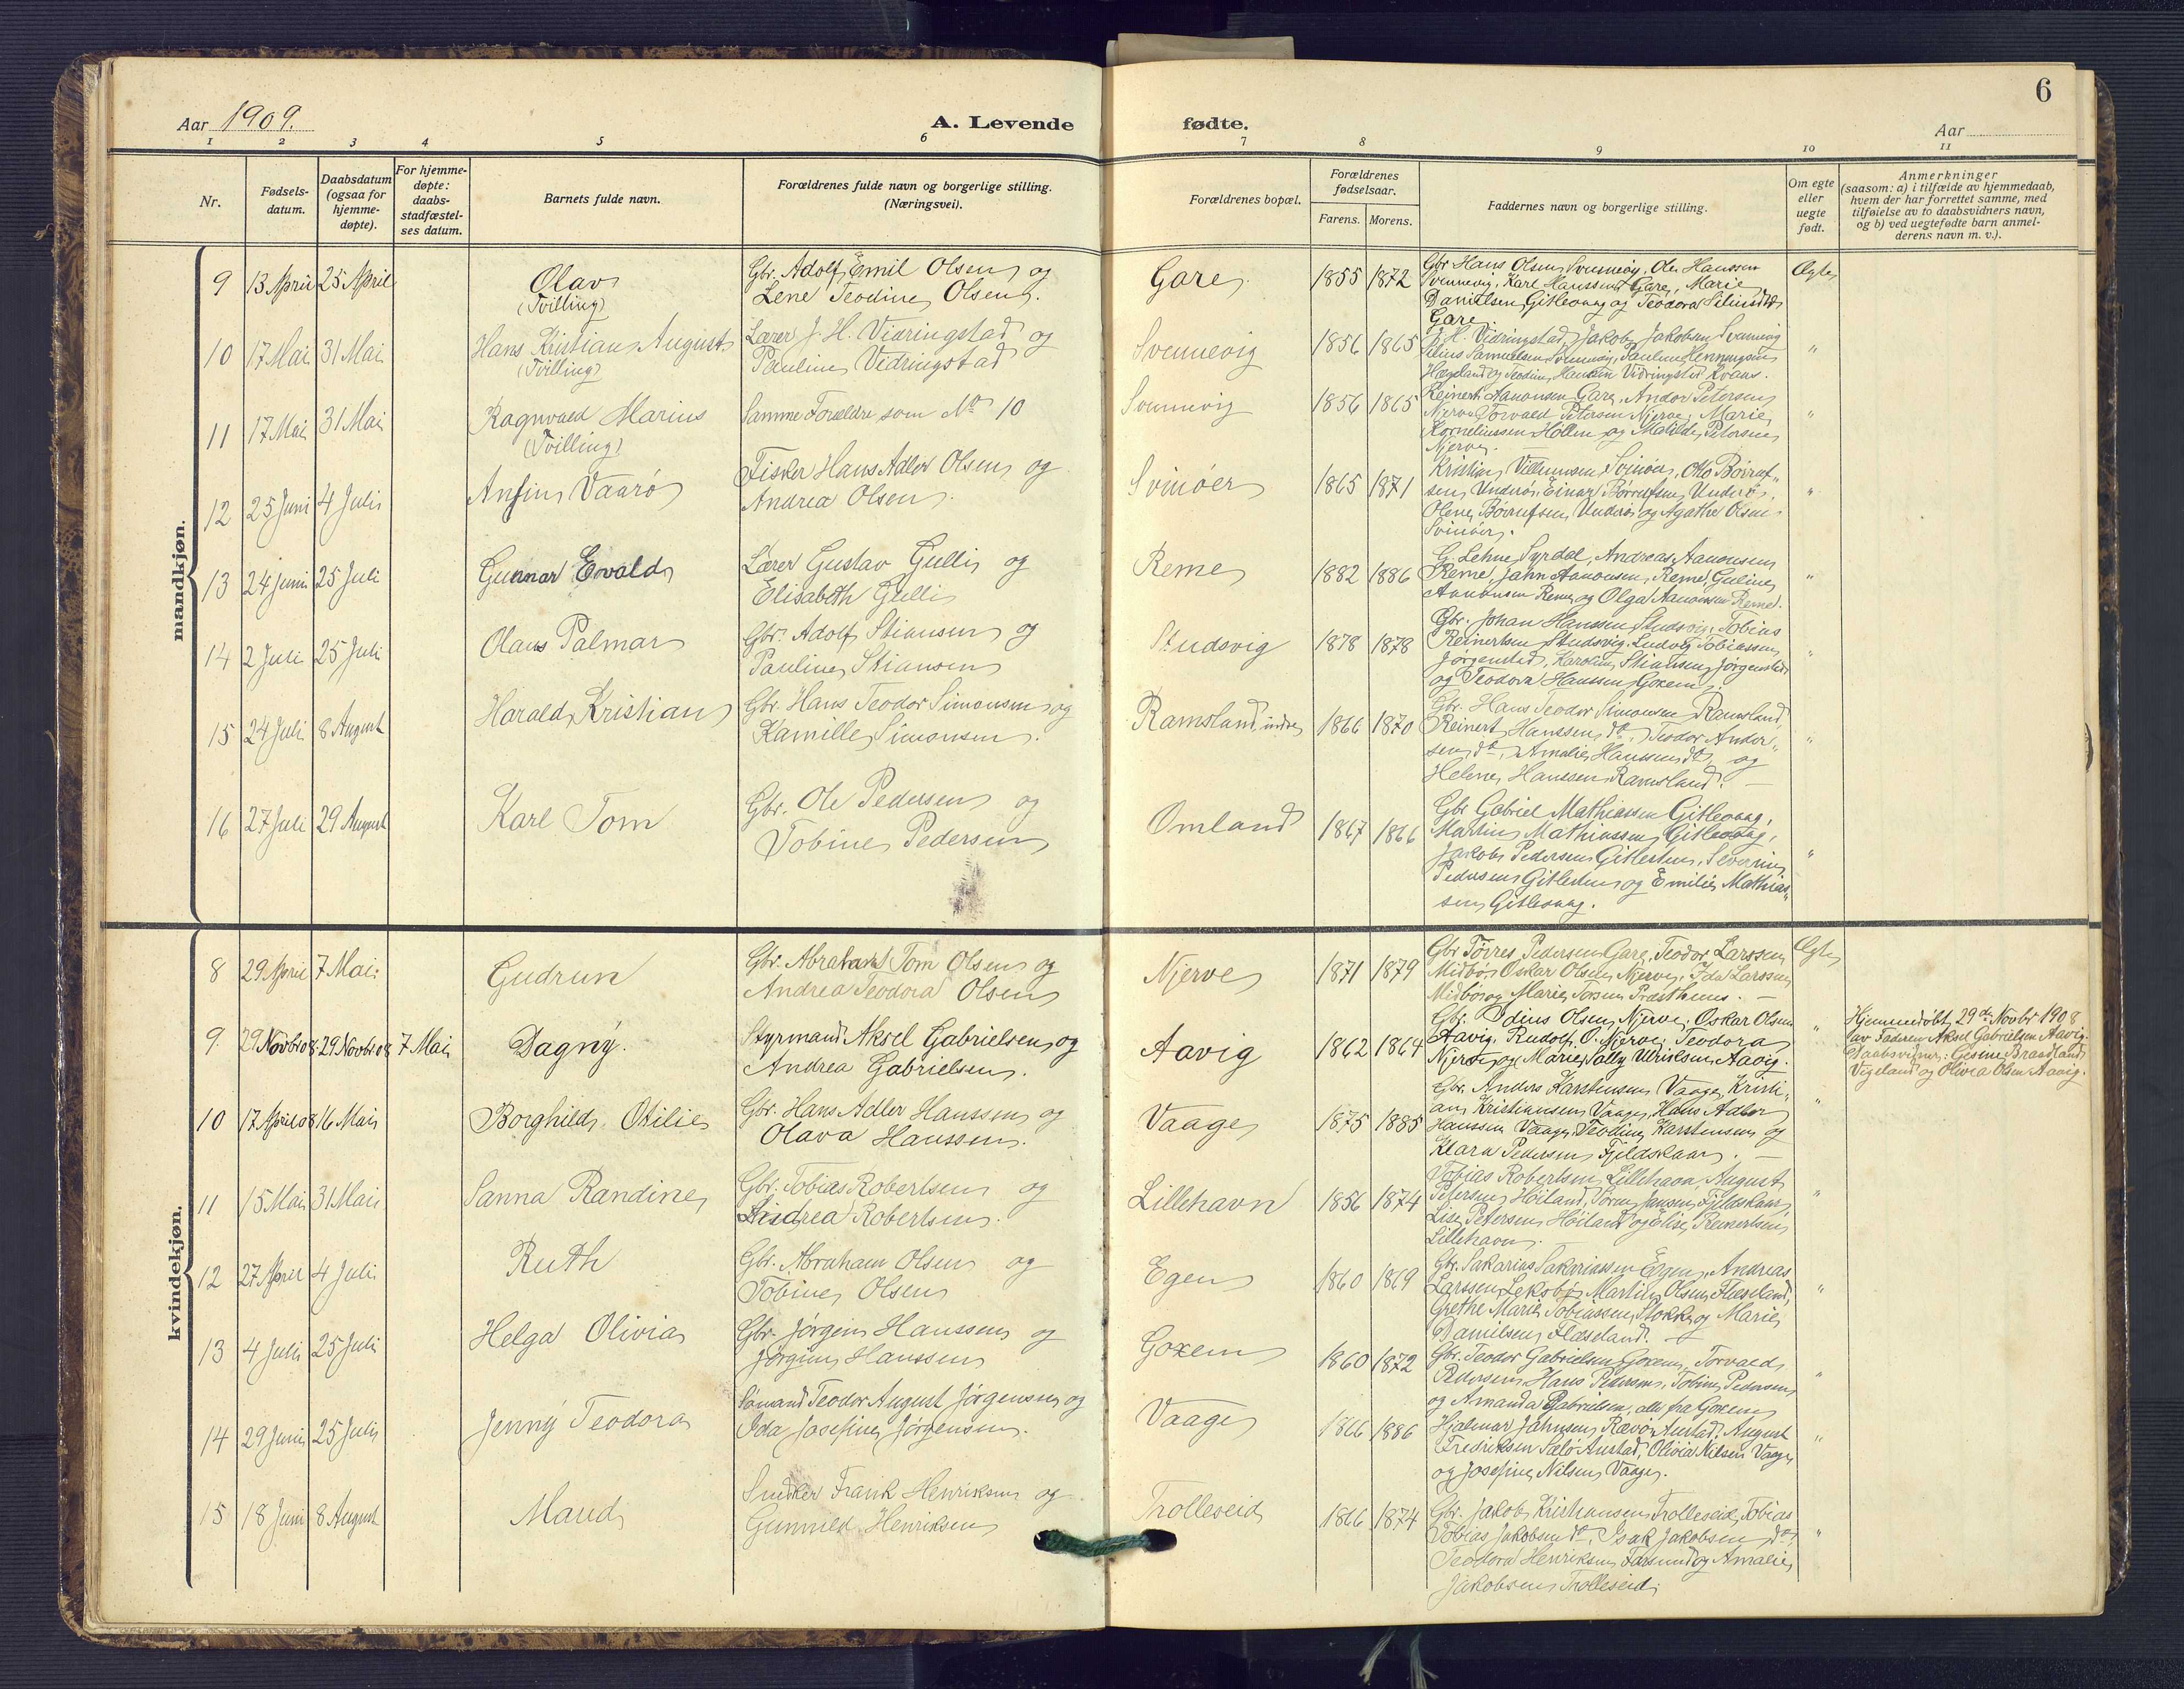 6
Aar 1909.
A. Levende fødte.
Aar
1 2 3 4 5 6 7 8 9 10 11
Nr.
Fødsels-
datum.
Daabsdatum
(ogsaa for
hjemme-
døpte).
For hjemme-
døpte:
daabs-
stadfæstel-
ses datum.
Barnets fulde navn.
Forældrenes fulde navn og borgerlige stilling.
(Næringsvei).
Forældrenes bopæl.
Forældrenes
fødselsaar.
Farens. Morens.
Faddernes navn og borgerlige stilling.
Om egte
eller
uegte
født.
Anmerkninger
(saasom: a) i tilfælde av hjemmedaab,
hvem der har forrettet samme, med
tilføielse av to daabsvidners navn,
og b) ved uegtefødte barn anmel-
derens navn m. v.).
mandkjøn.
9 13 April 25 April
Olav
(Tvilling)
Gbr. Adolf Emil Olsen og
Lene Teodine Olsen.
Gare 1855 1872
Gbr Hans Olsen Svennevig, Ole Hanssen
Svennevig, Karl Hanssen Gare, Marie
Danielsen Gitlevaag og Teodora
Gare.
Ægte
10 17 Mai 31 Mai
Hans Kristian August
(Tvilling)
Lærer J. H. Vidringstad og
Pauline Vidringstad
Svennevig 1856 1865
J. H. Vidringstad, Jakob Jakobsen Svennevig
Silius Samuelsen Svennevig, Pauline Henningsen
Hægeland og Teodine Hansen Vidringstad Kvaas.
"
11 17 Mai 31 Mai
Ragnvald Marius
(Tvilling)
Samme Forældre som No 10
Svennevig 1856 1865
Reinert Aanonsen Gare, Andor Petersen
Njerve Torvald Petersen Njerve, Marie
Korneliussen Höllen og Matilde Petersen
Njerve.
"
12 25 Juni 4 Juli
Anfin Vaarö
Fisker Hans Adler Olsen og
Andrea Olsen.
Svinöer 1865 1871
Kristian Villumsen Svinöer, Otto Börruf-
sen Underö, Einar Börrufsen Underö,
Olene Börrufsen Underö og Agathe Olsen
Svinöer.
"
13 24 Juni 25 Juli
Gunnar Ewald
Lærer Gustav Gulli og
Elisabeth Gulli
Reme 1882 1886
G. Lehne Syrdal, Andreas Aanonsen
Reme, Jahn Aanonsen Reme, Guline
Aanonsen Reme og Olga Aanonsen Reme.
"
14 2 Juli 25 Juli
Olaus Palmar
Gbr. Adolf Stiansen og
Pauline Stiansen
Studsvig 1878 1878
Gbr. Johan Hanssen Studsvig, Tobias
Reinertsen Studsvig, Ludvig Tobiassen
Jörgenstad, Karoline Stiansen Jörgenstad
og Teodora Hanssen Goxem.
"
15 24 Juli 8 August
Harald Kristian
Gbr. Hans Teodor Simonsen og
Kamille Simonsen.
Ramsland, indre 1866 1870
Gbr. Hans Teodor Simonsen Ramsland,
Reinert Hanssen do, Teodor Ander-
sen do, Amalie Hanssen do og
Helene Hanssen Ramsland. —
"
16 27 Juli 29 August
Karl Tom
Gbr. Ole Pedersen og
Tobine Pedersen
Omland 1867 1866
Gbr Gabriel Mathiassen Gitlevaag,
Martin Mathiassen Gitlevaag,
Jakob Pedersen Gitlesten, Severine
Pedersen Gitlesten og Emilie Mathias-
sen Gitlevaag.
"
kvindekjøn.
8 29 April 7 Mai
Gudrun
Gbr. Abraham Tom Olsen og
Andrea Teodora Olsen
Njerve 1871 1879
Gbr Törres Pedersen Gare, Teodor Larssen
Midbö, Oskar Olsen Njerve, Ida Larssen
Midbö og Marie Præsthuus. —
Ægte
9 29 Novbr 08 29 Novbr 08 7 Mai
Dagny.
Styrmand Aksel Gabrielsen og
Andrea Gabrielsen.
Aavig 1862 1864
Gbr. Edius Olsen Njerve, Oskar Olsen
Aavig, Rudolf O. Njerve, Teodora
Njerve og Marie Sally Ulriksen Aavig.
"
Hjemmedöbt 29de Novbr 1908
av Faderen Aksel Gabrielsen Aavig.
Daabsvidner: Gesine Braadland
Vigeland og Olivia Olsen Aavig.
10 17 April 08 16 Mai
Borghild Otilie
Gbr. Hans Adler Hanssen og
Olava Hanssen.
Vaage 1875 1885
Gbr. Anders Karstensen Vaage, Kristi-
an Kristiansen Vaage, Hans Adler
Hanssen Vaage, Teodine Karstensen og
Klara Pedersen Fjeldskaar. —
"
11 15 Mai 31 Mai
Sanna Randine
Gbr. Tobias Robertsen og
Andrea Robertsen.
Lillehavn 1856 1874
Tobias Robertsen Lillehavn, August
Petersen Höiland, Sören Jansen Fjeldskaar
Lise Petersen Höiland og Elise Reinertsen
Lillehavn.
"
12 27 April 4 Juli
Ruth
Gbr. Abraham Olsen og
Tobine Olsen
Egen 1860 1869
Gbr. Sakarias Sakariassen Egen, Andreas
Larssen Leksbö, Martin Olsen Flæseland,
Grethe Marie Tobiassen Stokke og Marie
Danielsen Flæseland. —
"
13 4 Juli 25 Juli
Helga Olivia
Gbr. Jörgen Hanssen og
Jörgine Hanssen
Goxem 1860 1872
Gbr. Teodor Gabrielsen Goxem, Torvald
Pedersen, Hans Pedersen, Tobine Pedersen
og Amanda Gabrielsen, alle fra Goxem
"
14 29 Juni 25 Juli
Jenny Teodora
Sömand Teodor August Jörgensen og
Ida Josefine Jörgensen.
Vaage 1866 1886
Hjalmar Jahnsen Rævö Austad, August
Fredriksen Sælö Austad, Olivia Nilsen Vaage
og Josefine Nilsen Vaage.
"
15 18 Juni 8 August
Maud
Snedker Frank Henriksen og
Gunnild Henriksen
Trolleseid 1866 1874
Gbr. Jakob Kristiansen Trolleseid, Tobias
Tobias Jakobsen do, Isak Jakobsen do,
Teodora Henriksen Farsund og Amalie
Jakobsen Trolleseid.
"